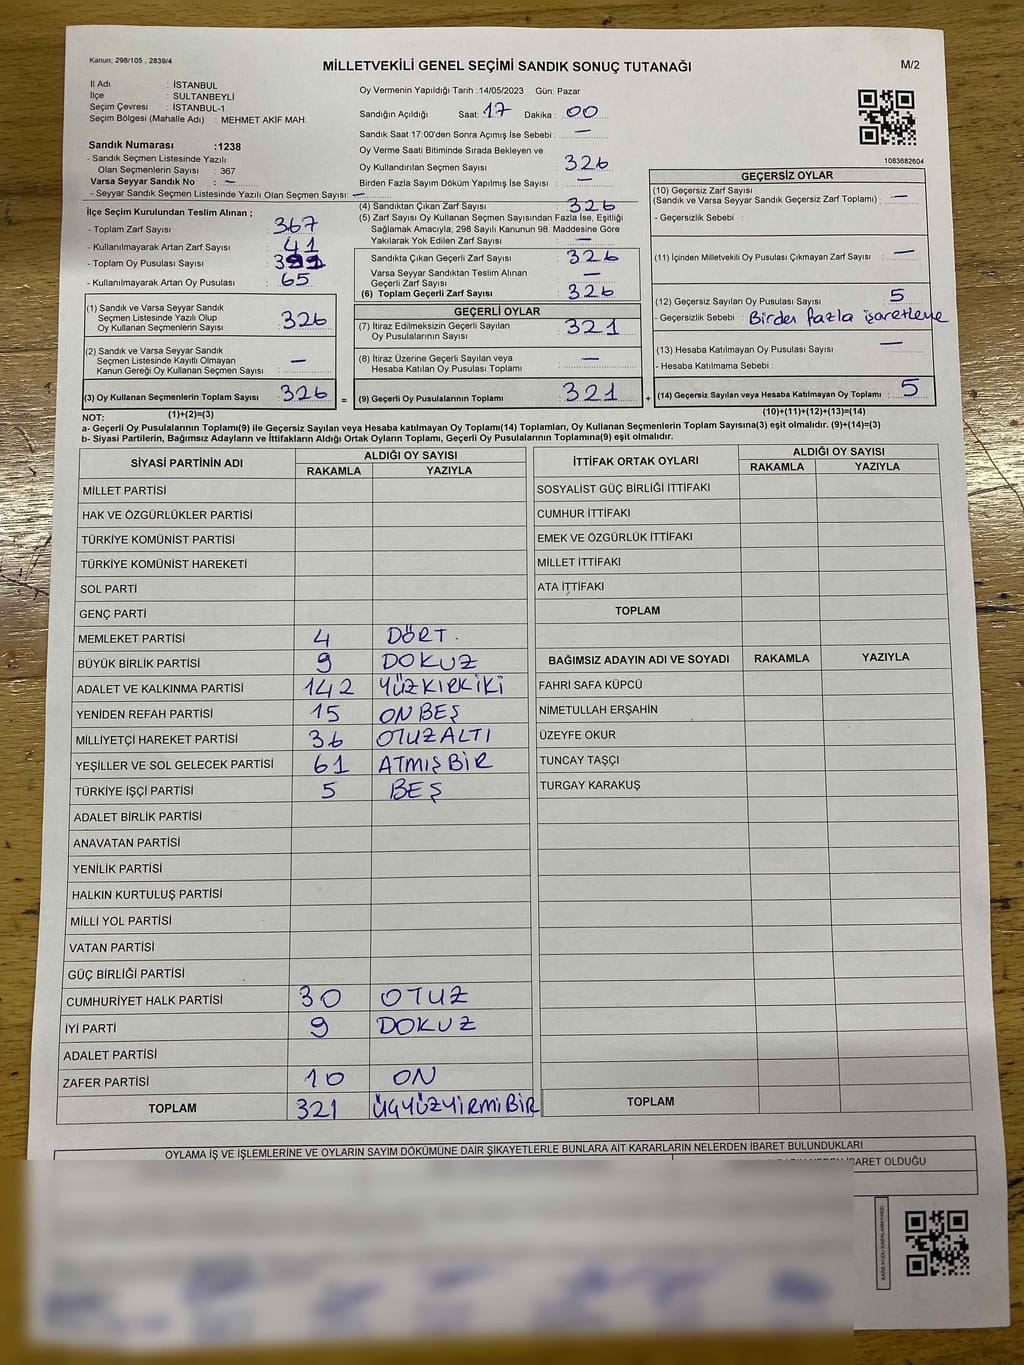 Kanun: 298/105 , 2839/4
MİLLETVEKİLİ GENEL SEÇİMİ SANDIK SONUÇ TUTANAĞI
M/2
İl Adı : İSTANBUL
İlçe : SULTANBEYLİ
Seçim Çevresi : İSTANBUL-1
Seçim Bölgesi (Mahalle Adı) : MEHMET AKİF MAH.
Sandık Numarası :1238
- Sandık Seçmen Listesinde Yazılı
Olan Seçmenlerin Sayısı : 367
Varsa Seyyar Sandık No : —
- Seyyar Sandık Seçmen Listesinde Yazılı Olan Seçmen Sayısı: —
İlçe Seçim Kurulundan Teslim Alınan ;
- Toplam Zarf Sayısı : 367
- Kullanılmayarak Artan Zarf Sayısı : 41
- Toplam Oy Pusulası Sayısı :
- Kullanılmayarak Artan Oy Pusulası : 65
(1) Sandık ve Varsa Seyyar Sandık
Seçmen Listesinde Yazılı Olup
Oy Kullanan Seçmenlerin Sayısı : 326
(2) Sandık ve Varsa Seyyar Sandık
Seçmen Listesinde Kayıtlı Olmayan
Kanun Gereği Oy Kullanan Seçmen Sayısı : —
(3) Oy Kullanan Seçmenlerin Toplam Sayısı : 326 =
(1)+(2)=(3)
Oy Vermenin Yapıldığı Tarih :14/05/2023 Gün: Pazar
Sandığın Açıldığı Saat: 17 Dakika : 00
Sandık Saat 17:00'den Sonra Açımış İse Sebebi : —
Oy Verme Saati Bitiminde Sırada Bekleyen ve
Oy Kullandırılan Seçmen Sayısı : 326
Birden Fazla Sayım Döküm Yapılmış İse Sayısı : —
(4) Sandıktan Çıkan Zarf Sayısı : 326
(5) Zarf Sayısı Oy Kullanan Seçmen Sayısından Fazla İse, Eşitliği
Sağlamak Amacıyla, 298 Sayılı Kanunun 98. Maddesine Göre
Yakılarak Yok Edilen Zarf Sayısı : —
Sandıkta Çıkan Geçerli Zarf Sayısı : 326
Varsa Seyyar Sandıktan Teslim Alınan
Geçerli Zarf Sayısı : —
(6) Toplam Geçerli Zarf Sayısı : 326
GEÇERLİ OYLAR
(7) İtiraz Edilmeksizin Geçerli Sayılan
Oy Pusulalarının Sayısı : 321
(8) İtiraz Üzerine Geçerli Sayılan veya
Hesaba Katılan Oy Pusulası Toplamı : —
(9) Geçerli Oy Pusulalarının Toplamı : 321 +
1083682604
GEÇERSİZ OYLAR
(10) Geçersiz Zarf Sayısı
(Sandık ve Varsa Seyyar Sandık Geçersiz Zarf Toplamı) : —
- Geçersizlik Sebebi :
(11) İçinden Milletvekili Oy Pusulası Çıkmayan Zarf Sayısı : —
(12) Geçersiz Sayılan Oy Pusulası Sayısı : 5
- Geçersizlik Sebebi : Birden fazla işaretleme
(13) Hesaba Katılmayan Oy Pusulası Sayısı : —
- Hesaba Katılmama Sebebi :
(14) Geçersiz Sayılan veya Hesaba Katılmayan Oy Toplamı : 5
(10)+(11)+(12)+(13)=(14)
NOT:
a- Geçerli Oy Pusulalarının Toplamı(9) ile Geçersiz Sayılan veya Hesaba katılmayan Oy Toplamı(14) Toplamları, Oy Kullanan Seçmenlerin Toplam Sayısına(3) eşit olmalıdır. (9)+(14)=(3)
b- Siyasi Partilerin, Bağımsız Adayların ve İttifakların Aldığı Ortak Oyların Toplamı, Geçerli Oy Pusulalarının Toplamına(9) eşit olmalıdır.
SİYASİ PARTİNİN ADI ALDIĞI OY SAYISI
RAKAMLA YAZIYLA
MİLLET PARTİSİ
HAK VE ÖZGÜRLÜKLER PARTİSİ
TÜRKİYE KOMÜNİST PARTİSİ
TÜRKİYE KOMÜNİST HAREKETİ
SOL PARTİ
GENÇ PARTİ
MEMLEKET PARTİSİ 4 DÖRT.
BÜYÜK BİRLİK PARTİSİ 9 DOKUZ
ADALET VE KALKINMA PARTİSİ 142 YÜZKIRKİKİ
YENİDEN REFAH PARTİSİ 15 ONBEŞ
MİLLİYETÇİ HAREKET PARTİSİ 36 OTUZALTI
YEŞİLLER VE SOL GELECEK PARTİSİ 61 ATMIŞBİR
TÜRKİYE İŞÇİ PARTİSİ 5 BEŞ
ADALET BİRLİK PARTİSİ
ANAVATAN PARTİSİ
YENİLİK PARTİSİ
HALKIN KURTULUŞ PARTİSİ
MİLLİ YOL PARTİSİ
VATAN PARTİSİ
GÜÇ BİRLİĞİ PARTİSİ
CUMHURİYET HALK PARTİSİ 30 OTUZ
İYİ PARTİ 9 DOKUZ
ADALET PARTİSİ
ZAFER PARTİSİ 10 ON
TOPLAM 321 ÜÇYÜZYİRMİBİR
İTTİFAK ORTAK OYLARI ALDIĞI OY SAYISI
RAKAMLA YAZIYLA
SOSYALİST GÜÇ BİRLİĞİ İTTİFAKI
CUMHUR İTTİFAKI
EMEK VE ÖZGÜRLÜK İTTİFAKI
MİLLET İTTİFAKI
ATA İTTİFAKI
TOPLAM
BAĞIMSIZ ADAYIN ADI VE SOYADI RAKAMLA YAZIYLA
FAHRİ SAFA KÜPCÜ
NİMETULLAH ERŞAHİN
ÜZEYFE OKUR
TUNCAY TAŞÇI
TURGAY KARAKUŞ
TOPLAM
OYLAMA İŞ VE İŞLEMLERİNE VE OYLARIN SAYIM DÖKÜMÜNE DAİR ŞİKAYETLERLE BUNLARA AİT KARARLARIN NELERDEN İBARET BULUNDUKLARI
İBARET OLDUĞU
KARE KODU KARALAMAYINIZ!